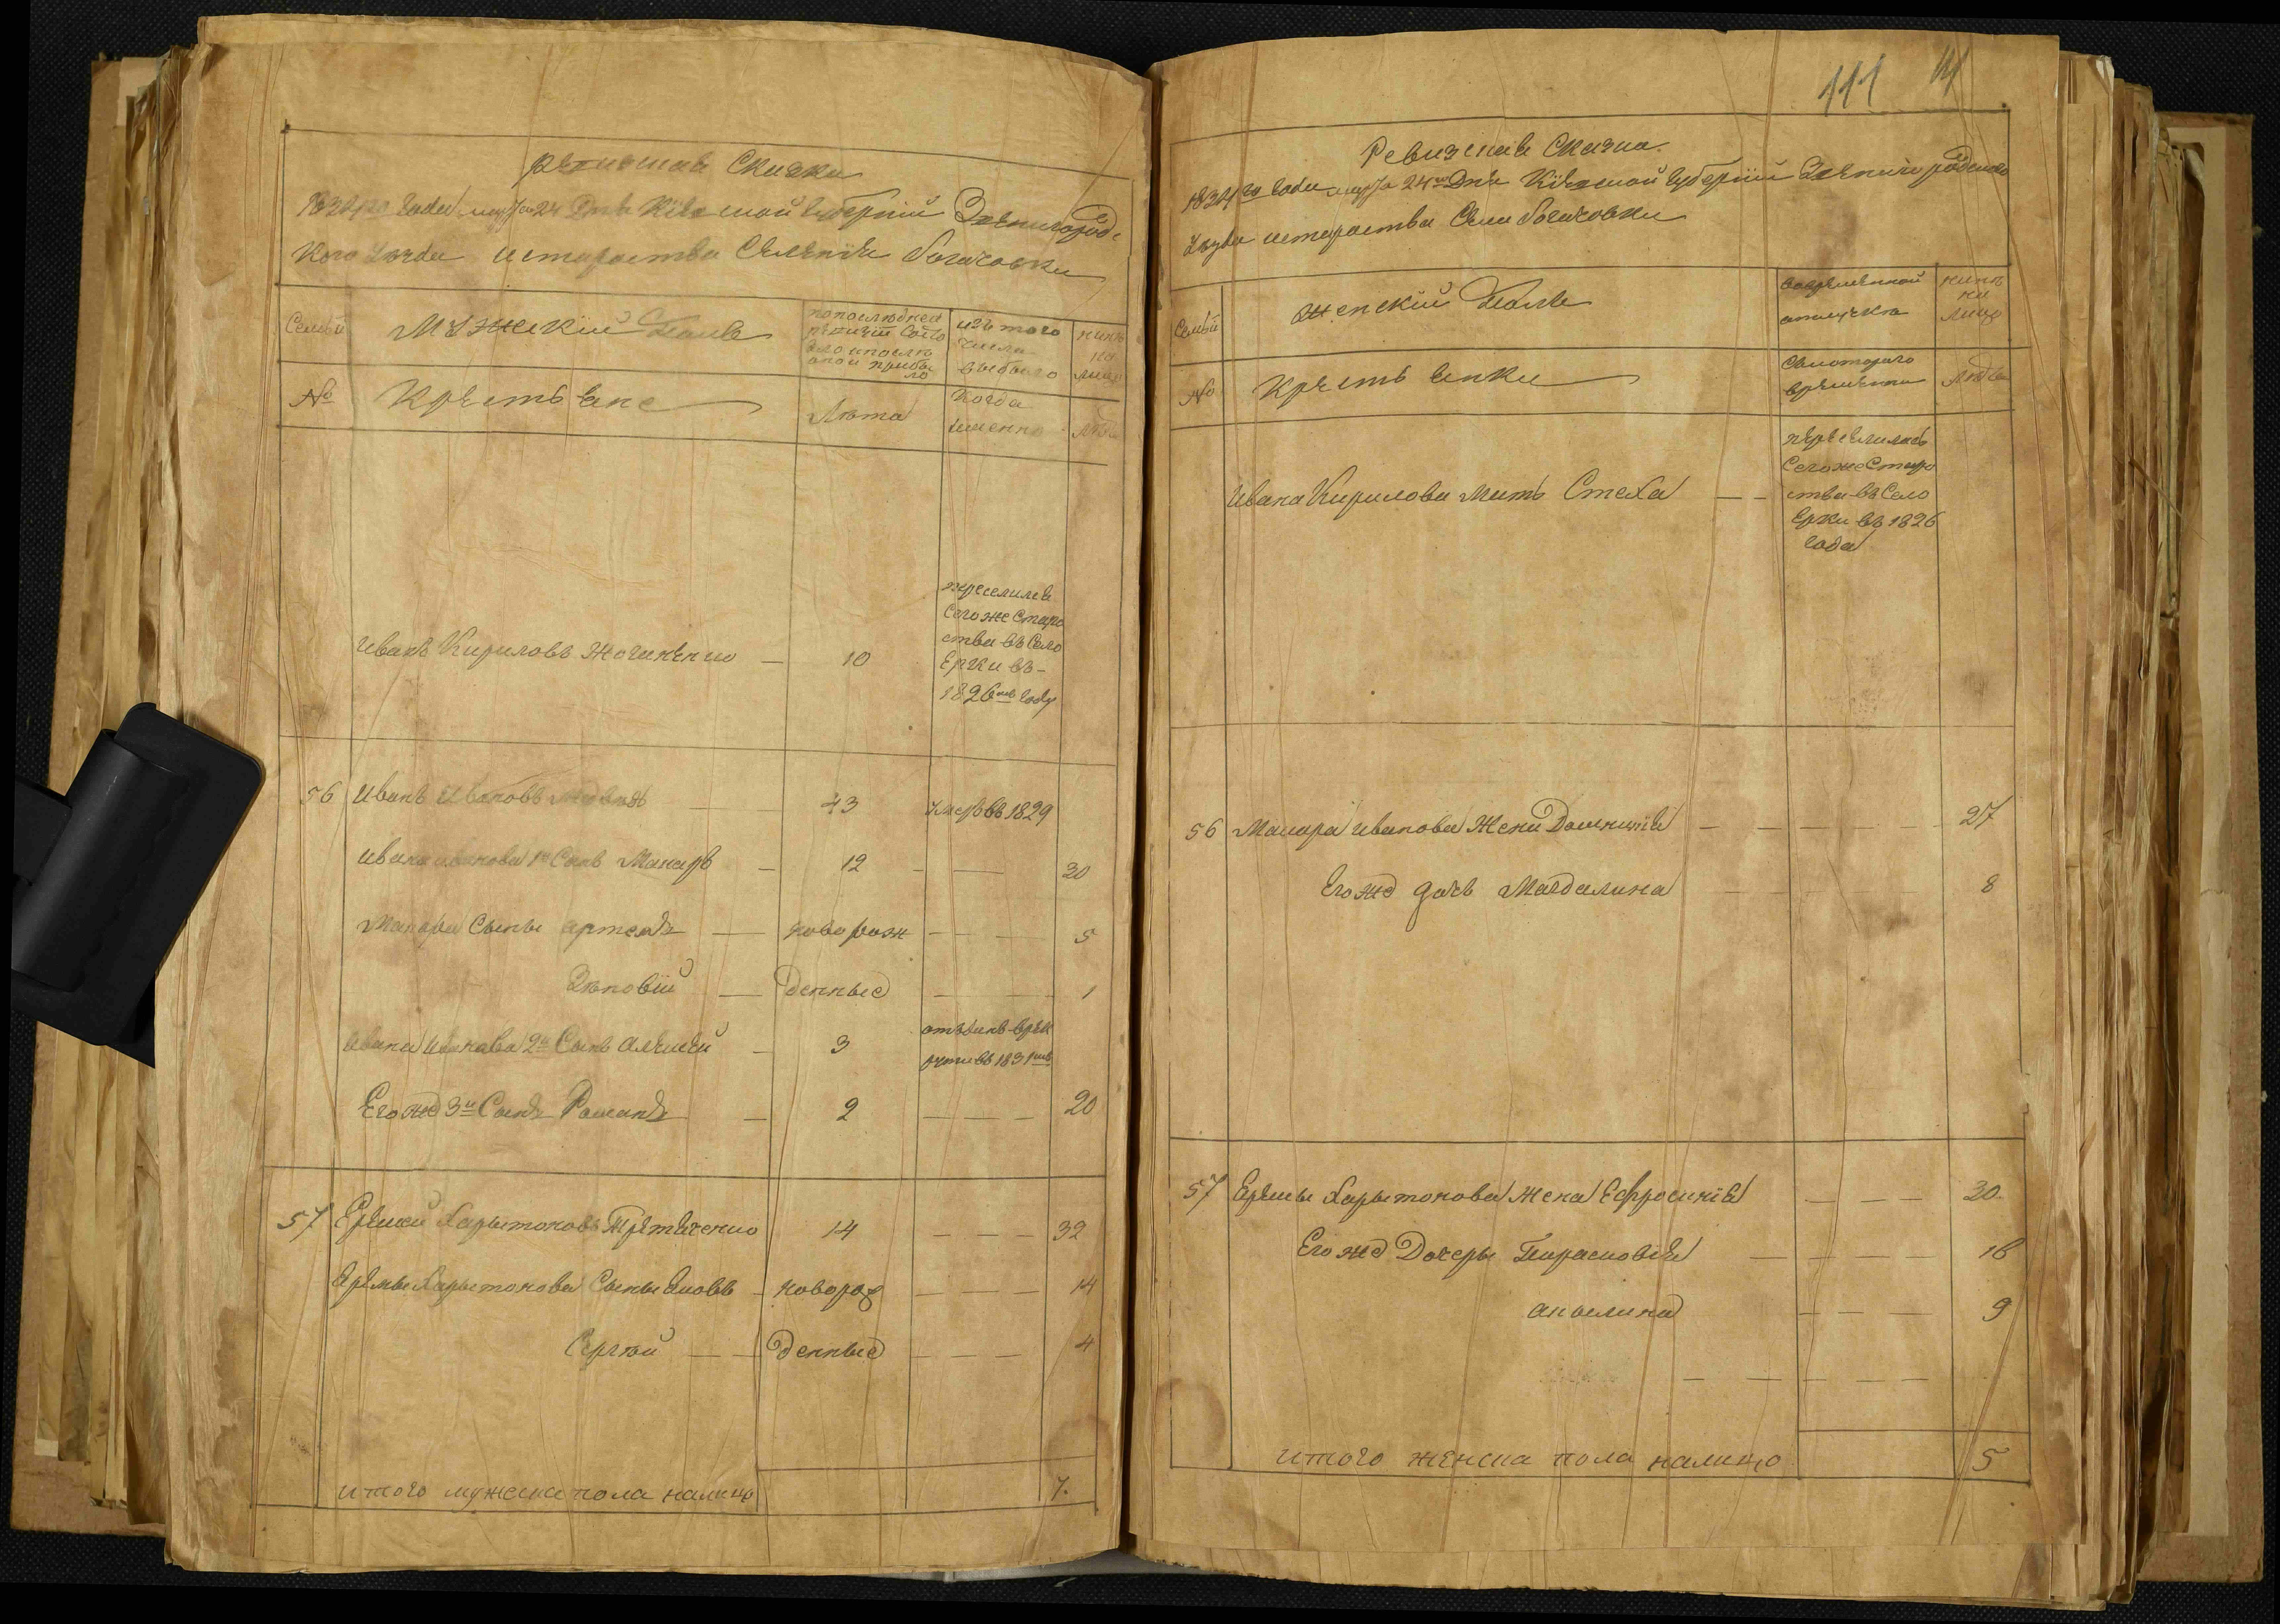 Ревизская Сказка
1834го Года марта 24 Дня Кіевской Губерніи Звенигород-
кого уезда староства Селенія богачовки
Семьи
Мужескій Полъ
по последней
ревизіи состо
яло и после
оной прибы
ло
изъ того
числа
выбыло
ныне
на
лицо
№
Крестьяне
Лета
Когда
именно
Лета
Иванъ Кириловъ
10
переселился
Сего же Старо
ства въ Село
Ерки въ
1826мъ Году
56 Иванъ Ивановъ
43
умеръ въ 1829
Ивана Иванова 1й Сынъ Макаръ
12
20
Макара Сыны артемъ
новорож
5
Зеновій
денные
1
Ивана Иванова 2й Сынъ Алексей
3
отданъ в рек
руты въ 1831мъ
Его же 3й Сынъ Романъ
2
20
57 Еремей Харытоновъ Третяченко
14
32
Еремы Харытонова Сыны Яковъ
новорож
14
Сергей
денные
4
итого мужеска пола налицо
7.
111
Ревизская Сказка.
1834го Года марта 24го Дня Кіевской Губерніи Звенигородского
уезда староства Села богачовки
Семьи
Женскій Полъ
во временной
отлучке
ныне
на
лицо
№
Крестьянки
С которого
времени
Лета
Ивана Кирилова мать Стеха
переселилась
Сего же Старо
ства въ Село
Ерки въ 1826
Года
56 Макара Иванова Жена Домникія
27
Его же дочь Магдалина
8
57 Еремы Харытонова Жена Ефросинія
30
Его же Дочеры Парасковія
16
акилина
9
итого женска пола налицо
5